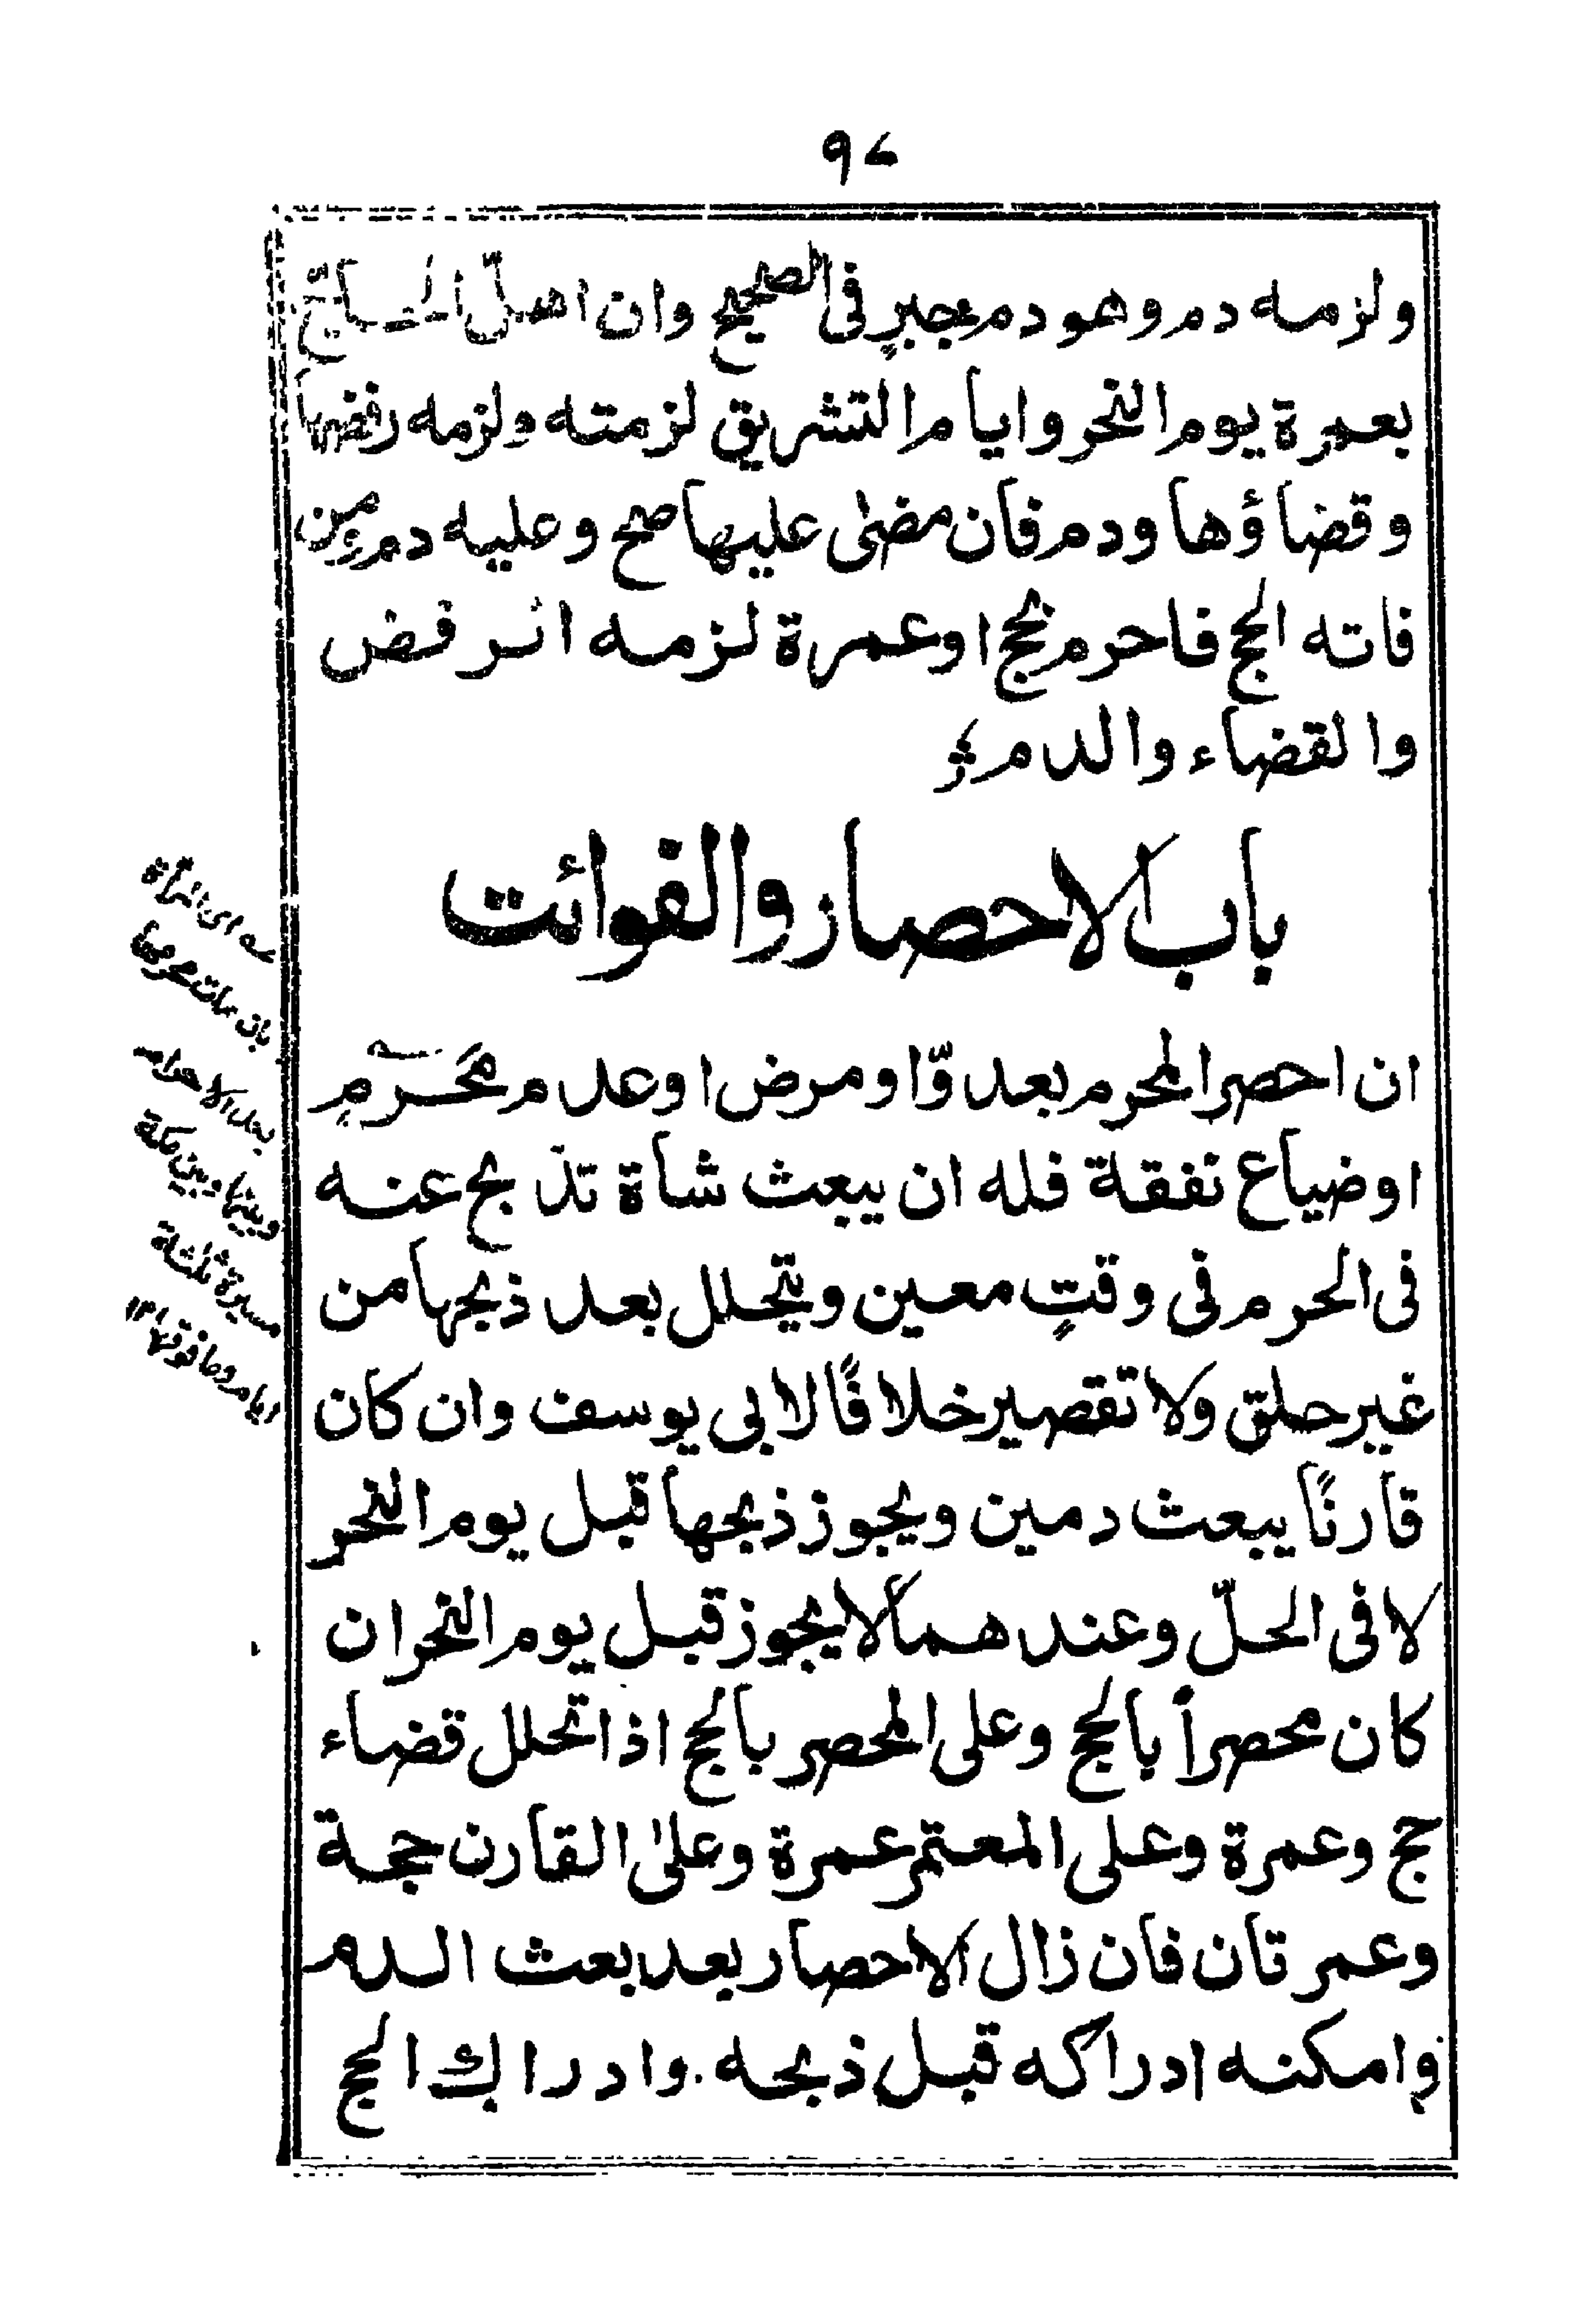 ٩٤
ولزمه دم وهو دم جبرٍ فى الصحيح وان اهلّ الحاجّ
بعمرة يوم النحر وايام التشريق لزمته ولزمه رفضها
وقضاؤها ودم فان مضىٰ عليها صح وعليه دم ومن
فاته الحج فاحرم بحج او عمرة لزمه الرفض
والقضاء والدم
باب الاحصار والفوائت
ان احصر المحرم بعدوّ او مرض او عدم مَحْرَمٍ
او ضياع نفقة فله ان يبعث شاة تذبح عنه
فى الحرم فى وقتٍ معين ويتحلل بعد ذبحها من
غير حلق ولا تقصير خلافًا لابى يوسف وان كان
قارنًا يبعث دمين ويجوز ذبحها قبل يوم النحر
لا فى الحلّ وعندهما لا يجوز قبل يوم النحر ان
كان محصراً بالحج وعلى المحصر بالحج اذا تحلل قضاء
حج وعمرة وعلى المعتمر عمرة وعلىٰ القارن حجة
وعمرتان فان زال الاحصار بعد بعث الدم
وامكنه ادراكه قبل ذبحه وادراك الحج
اى المرأة
بان مات محرمها
بعد الاحرام
وبينها وبين مكة
مسيرة ثلثة
ايام وما فوقها ١٢